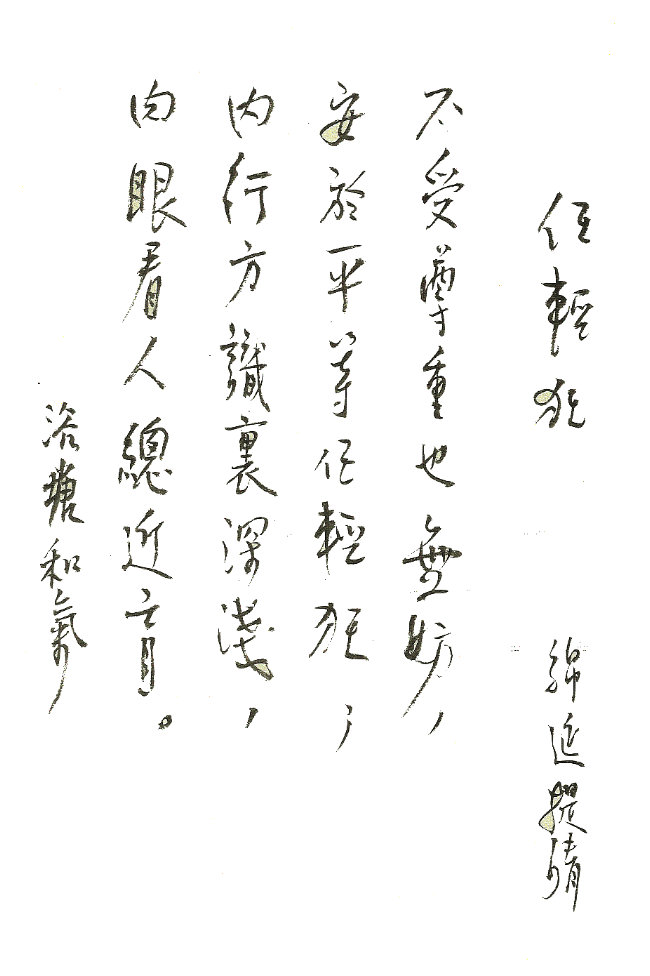 任輕狂
綿延提情
不受尊重也無妨,
安於平等任輕狂;
內行方識裏深淺,
肉眼看人總近盲。
和氣